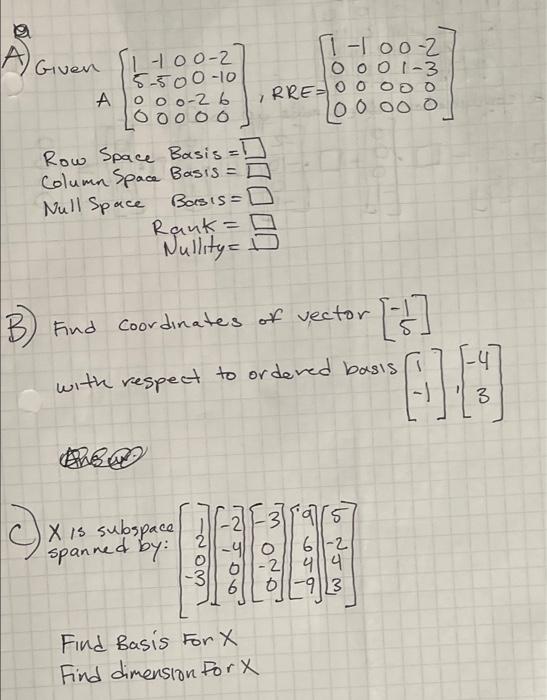 A) Given A [1 -1 0 0 -2
5 -5 0 0 -10
0 0 0 -2 6
0 0 0 0 0] , RRE = [1 -1 0 0 -2
0 0 0 1 -3
0 0 0 0 0
0 0 0 0 0]
Row Space Basis = □
Column Space Basis = □
Null Space Basis = □
Rank = □
Nullity = □
B) Find coordinates of vector [-1
5]
with respect to ordered basis [1
-1] , [-4
3]
C) X is subspace
spanned by: [1
2
0
-3] [-2
-4
0
6] [-3
0
-2
0] [9
6
4
-9] [5
-2
4
3]
Find Basis For X
Find dimension For X